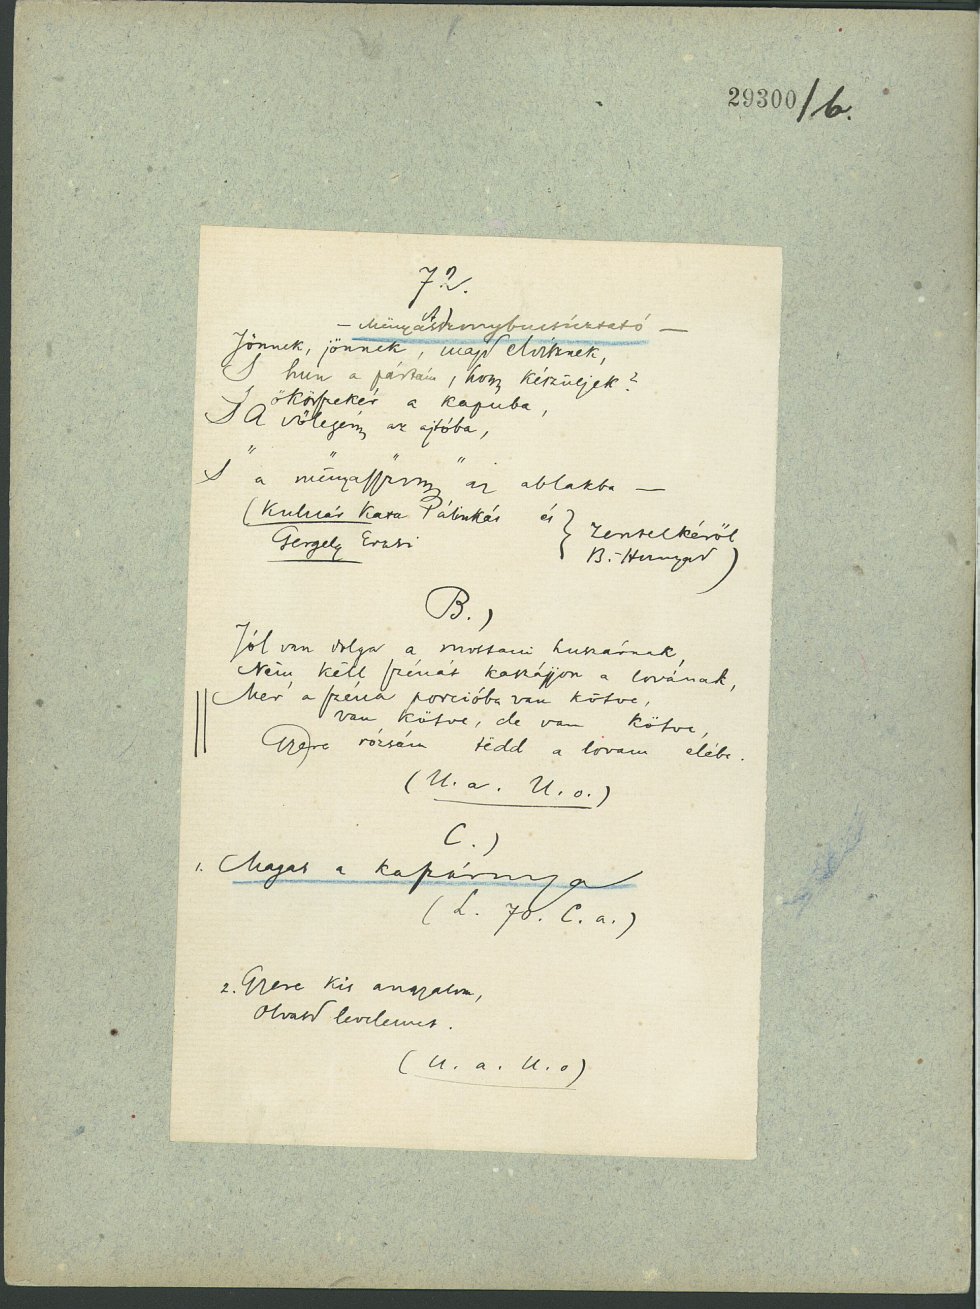 29300/b.
72.
A)
— Mënyasszonybucsúztató —
Jönnek, jönnek, majd elvisznek,
S hun a pártám, hogy készüljek?
S ökörszekér a kapuba,
S A vőlegény az ajtóba,
S " a mënyasszony " az ablakba —
(Kulcsár Kata Pálinkás és }
Gergely Erzsi
Zentelkéről
B.-Hunyad)
B.)
Jól van dolga a mostani huszárnak,
Nëm këll szénát kaszájjon a lovának,
Mer' a széna porcióba van kötve,
van kötve, de van kötve,
Gyere rózsám tëdd a lovam elébe.
(U. a. U. o.)
C.)
1. Magas a kaszárnya
(L. 70. C. a.)
2. Gyere kis angyalom,
Olvasd levelemet.
(U. a. U. o)